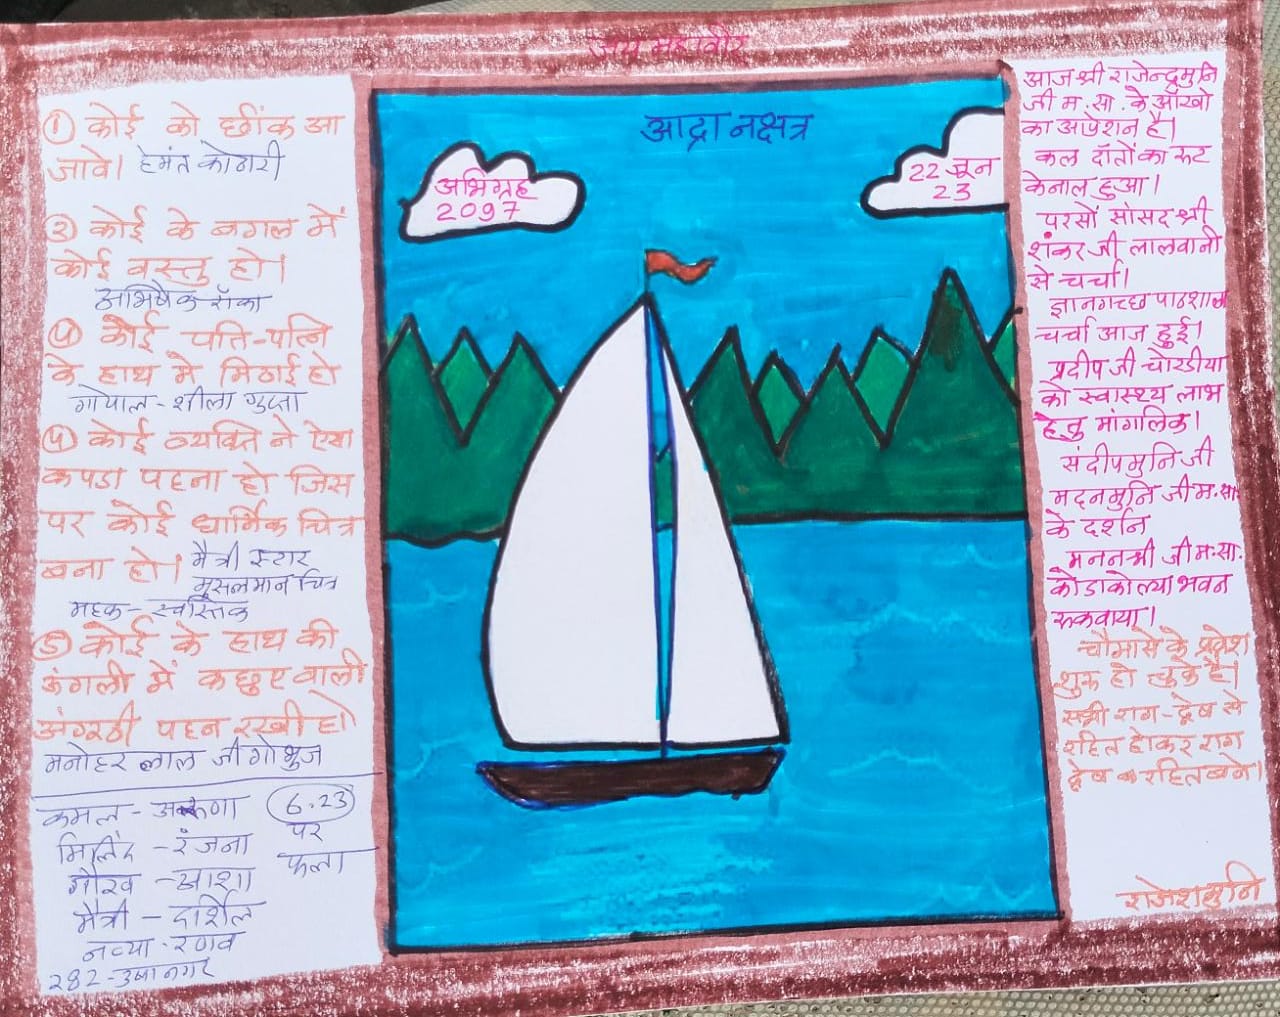 जय महावीर
① कोई को छींक आ
जावे। हेमंत कोठारी
② कोई के बगल में
कोई वस्तु हो।
अभिषेक रॉका
④ कोई पति-पत्नि
के हाथ में मिठाई हो
गोपाल-शीला गुप्ता
④ कोई व्यक्ति ने ऐसा
कपडा पहना हो जिस
पर कोई धार्मिक चित्र
बना हो। मैत्री स्टार
मुसलमान चित्र
महक- स्वस्तिक
⑤ कोई के हाथ की
उंगली में कछुए वाली
अंगूठी पहन रखी हो
मनोहर लाल जी गोभुज
कमल- अरूणा
मिलिंद -रंजना
गौरव -आशा
मैत्री - दर्शिल
नव्या-रणव
282-उषानगर
6.23
पर
फला
आद्रा नक्षत्र
अभिग्रह
2097
22 जून
23
आज श्री राजेन्द्रमुनि
जी म.सा. के आँखो
का आप्रेशन है।
कल दाँतों का रूट
केनाल हुआ।
परसों सांसद श्री
शंकर जी लालवानी
से चर्चा।
ज्ञानगच्छ पाठशाला
चर्चा आज हुई।
प्रदीप जी चोरडीया
को स्वास्थ्य लाभ
हेतु मांगलिक।
संदीपमुनि जी
मदनमुनि जी म.सा.
के दर्शन
मननश्री जी म.सा.
को डाकोल्या भवन
रूकवाया।
चौमासे के प्रवेश
शुरू हो चुके है।
सभी राग-द्वेष से
रहित होकर राग
द्वेष रहित बने।
राजेशमुनि